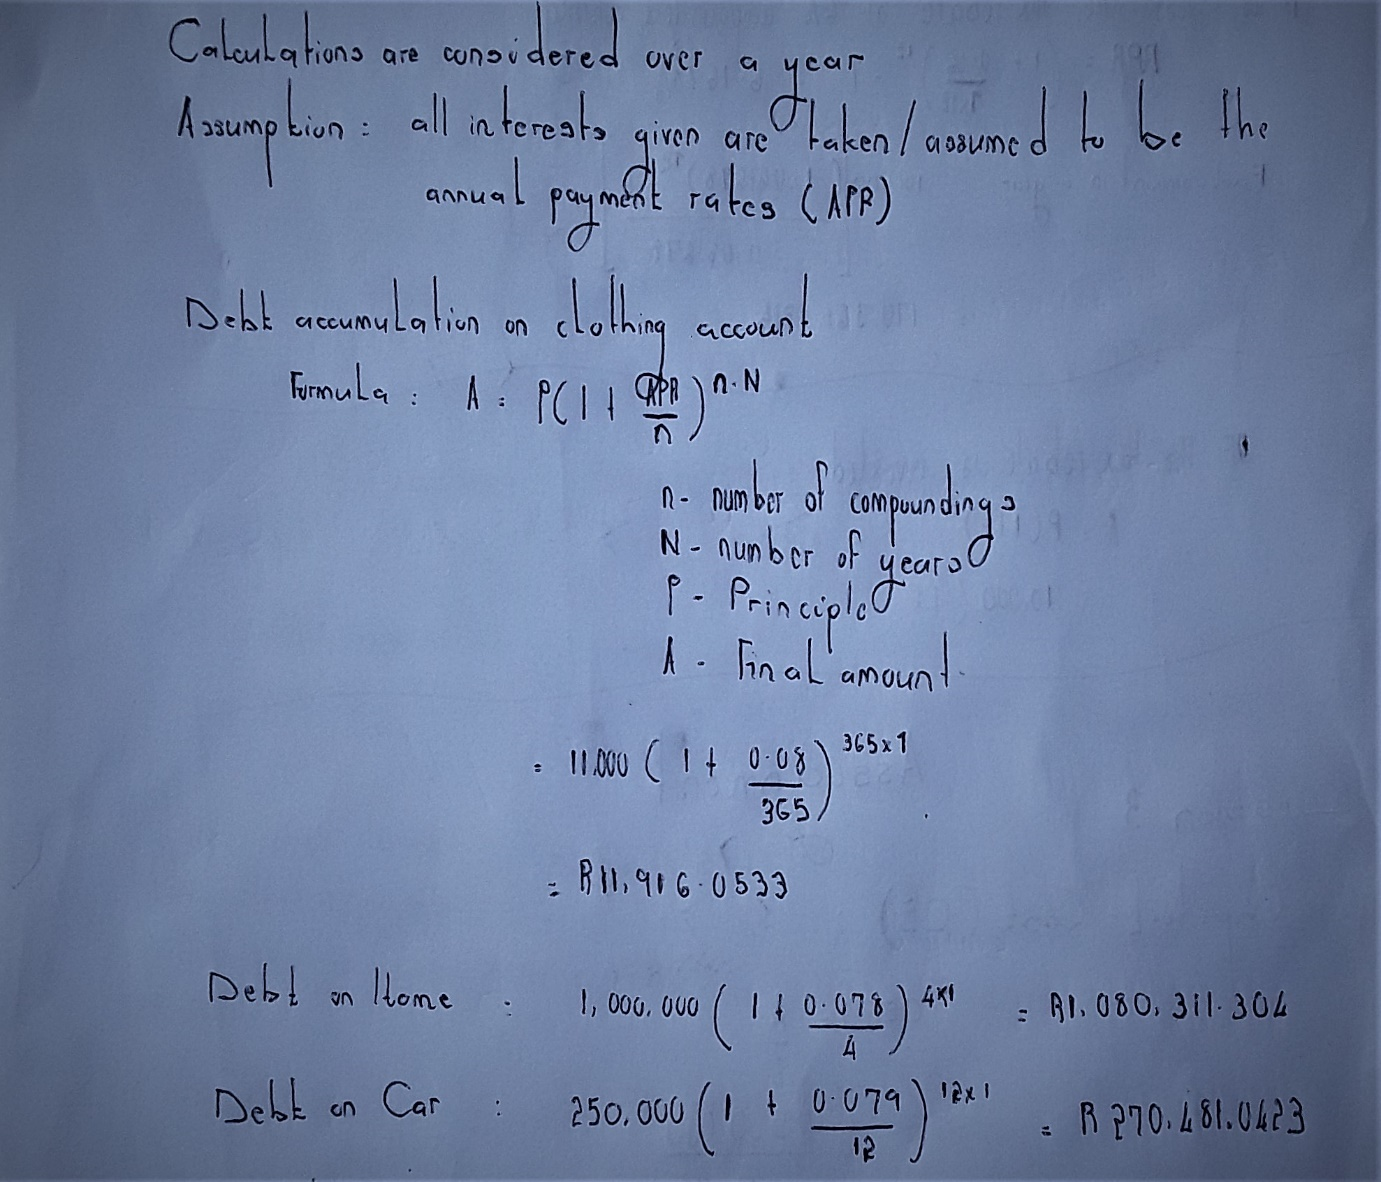 Calculations are considered over a year
Assumption : all interests given are taken / assumed to be the
annual payment rates (APR)
Debt accumulation on clothing account
Formula : A = P(1 + APR/n)^n.N
n - number of compoundings
N - number of years
P - Principle
A - Final amount
= 11.000 (1 + 0.08/365)^365x1
= R11,916.0533
Debt on Home : 1,000,000 (1 + 0.078/4)^4x1 = R1,080,311.304
Debt on Car : 250,000 (1 + 0.079/12)^12x1 = R 270,481.0423